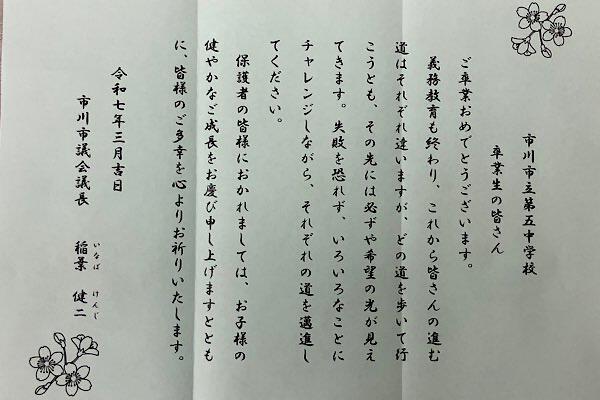 市川市立第五中学校
卒業生の皆さん
ご卒業おめでとうございます。
義務教育も終わり、これから皆さんの進む
道はそれぞれ違いますが、どの道を歩いて行
こうとも、その先には必ずや希望の光が見え
てきます。失敗を恐れず、いろいろなことに
チャレンジしながら、それぞれの道を邁進し
てください。
保護者の皆様におかれましては、お子様の
健やかなご成長をお慶び申し上げますととも
に、皆様のご多幸を心よりお祈りいたします。
令和七年三月吉日
市川市議会議長 稲葉 健二
いなば けんじ